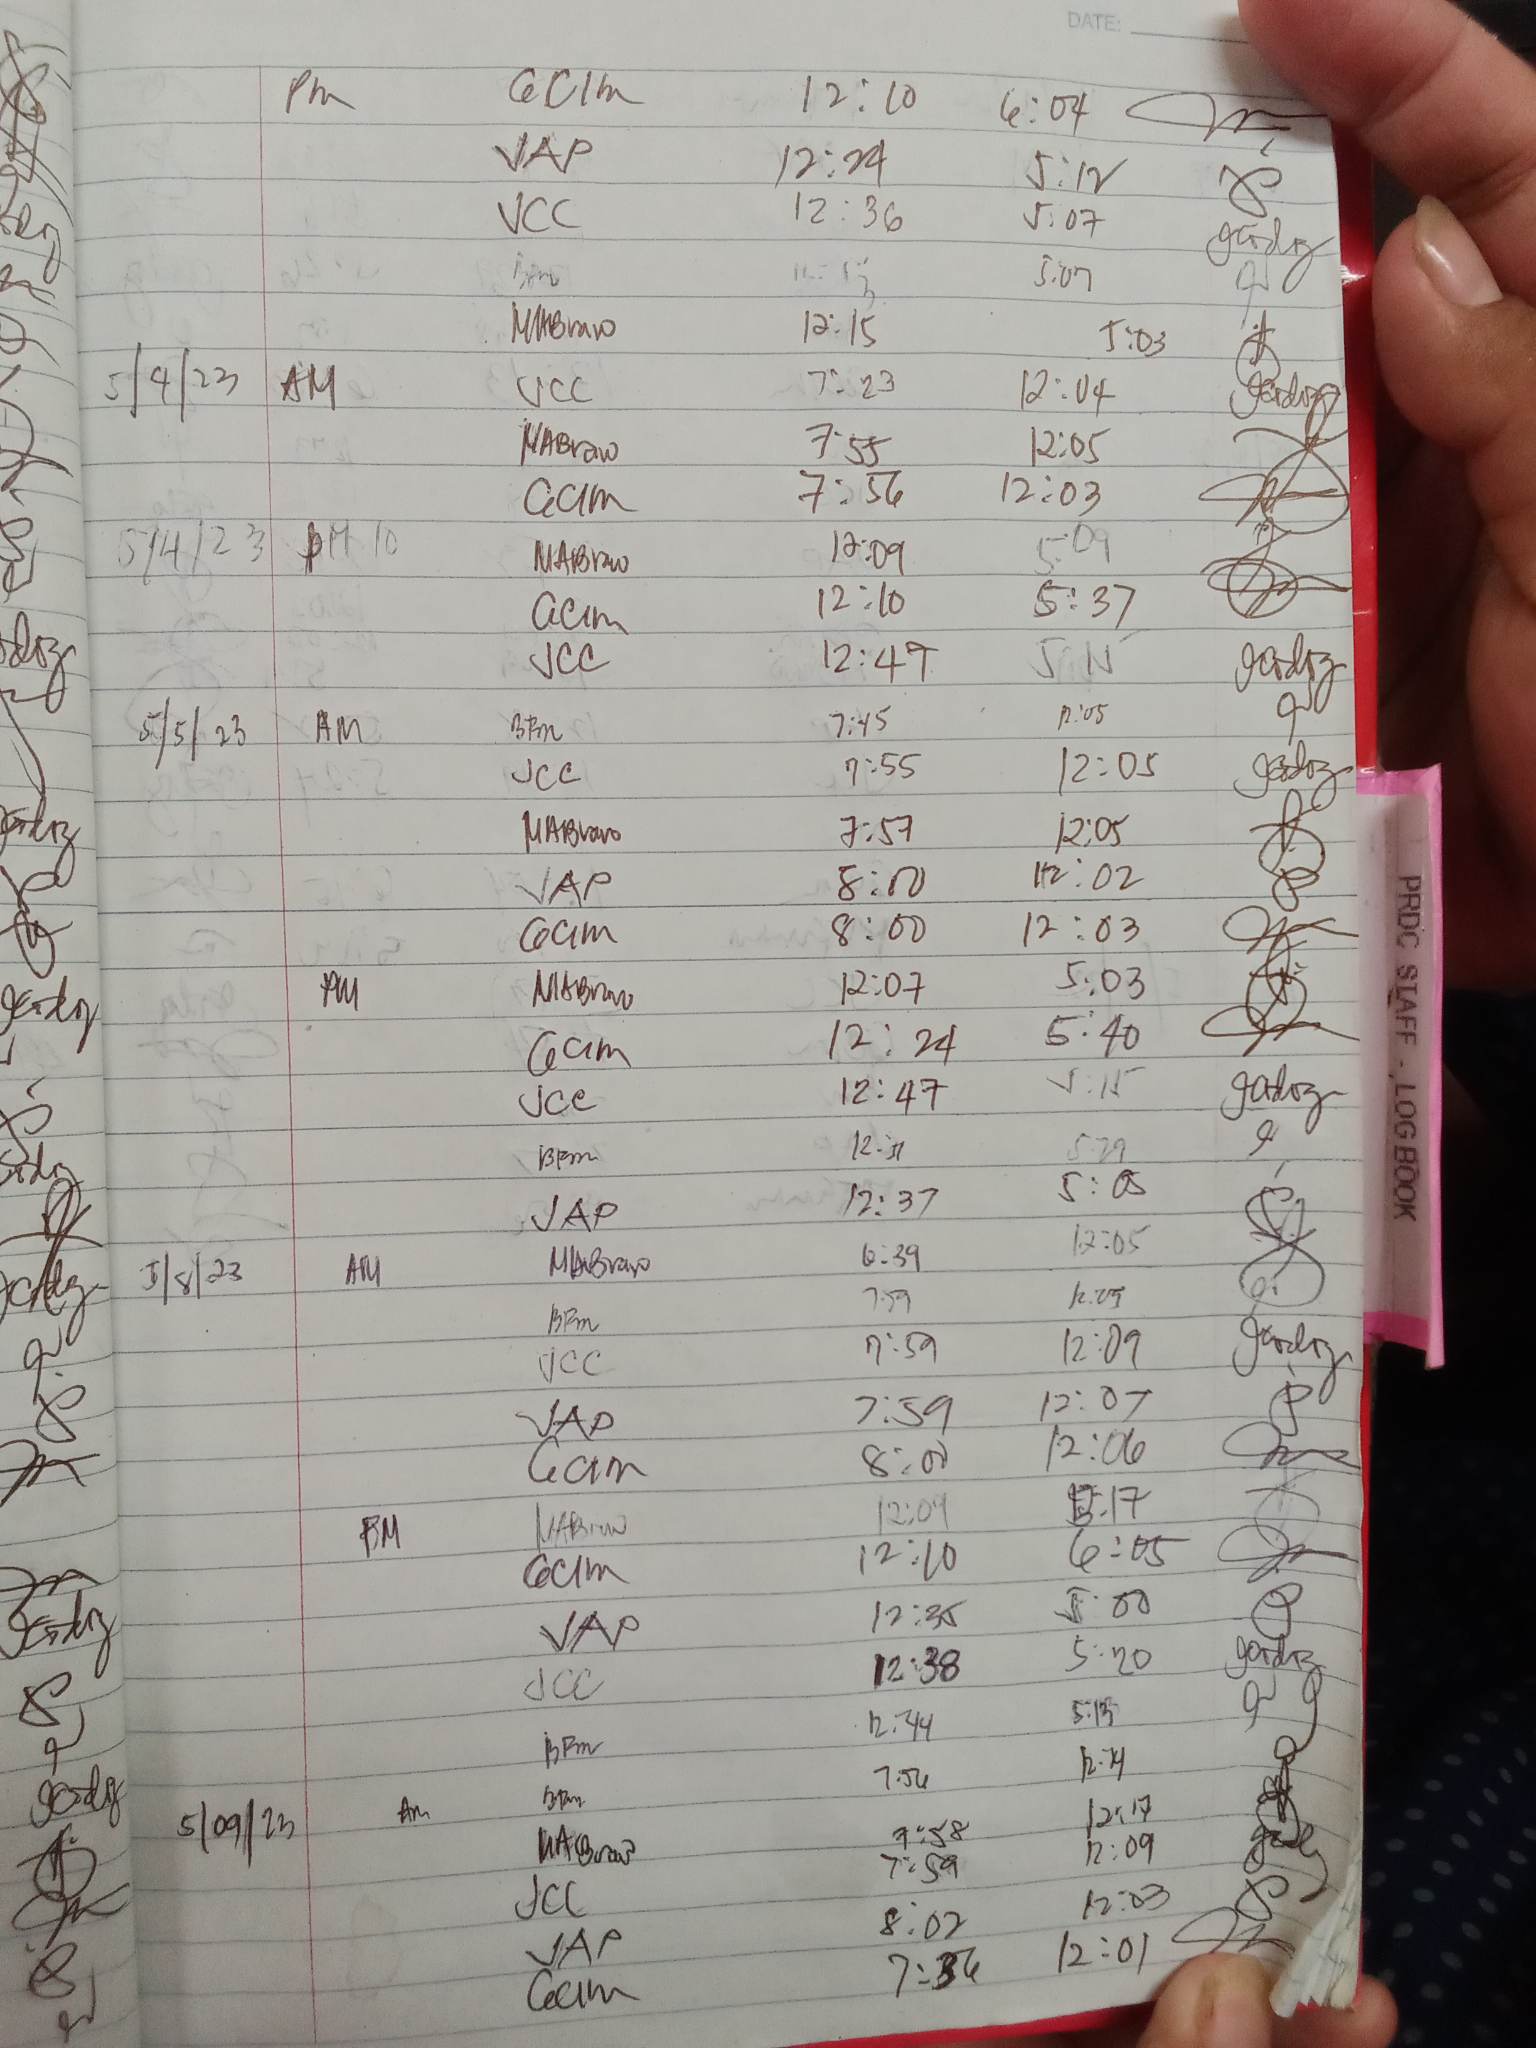 DATE:
Pm GCIm 12:10 6:04
VAP 12:24 5:12
JCC 12:36 5:07 gardoz
BFm 5:07
MABravo 12:15 5:03
5/4/23 AM JCC 7:23 12:04 gardoz
MABravo 7:55 12:05
GCIm 7:56 12:03
5/4/23 PM 10 MABravo 12:09 5:09
GCIm 12:10 5:37
JCC 12:47 5:15 gardoz
5/5/23 AM BFm 7:45 12:05
JCC 7:55 12:05 gardoz
MABravo 7:57 12:05
VAP 8:00 12:02
GCIm 8:00 12:03
PM MABravo 12:07 5:03
GCIm 12:24 5:40
JCC 12:47 5:15 gardoz
BFm 12:31 5:29
VAP 12:37 5:05
5/8/23 AM MABravo 6:39 12:05
BFm 7:59 12:09
JCC 7:59 12:09 gardoz
VAP 7:59 12:07
GCIm 8:00 12:06
PM MABravo 12:09 5:17
GCIm 12:10 6:05
VAP 12:35 5:00
JCC 12:38 5:20 gardoz
BFm 12:44 5:13
BFm 7:56 12:14
5/09/23 Am MABravo 7:58 12:17
JCC 7:59 12:09
VAP 8:02 12:03
GCIm 7:36 12:01
PRDC STAFF - LOGBOOK